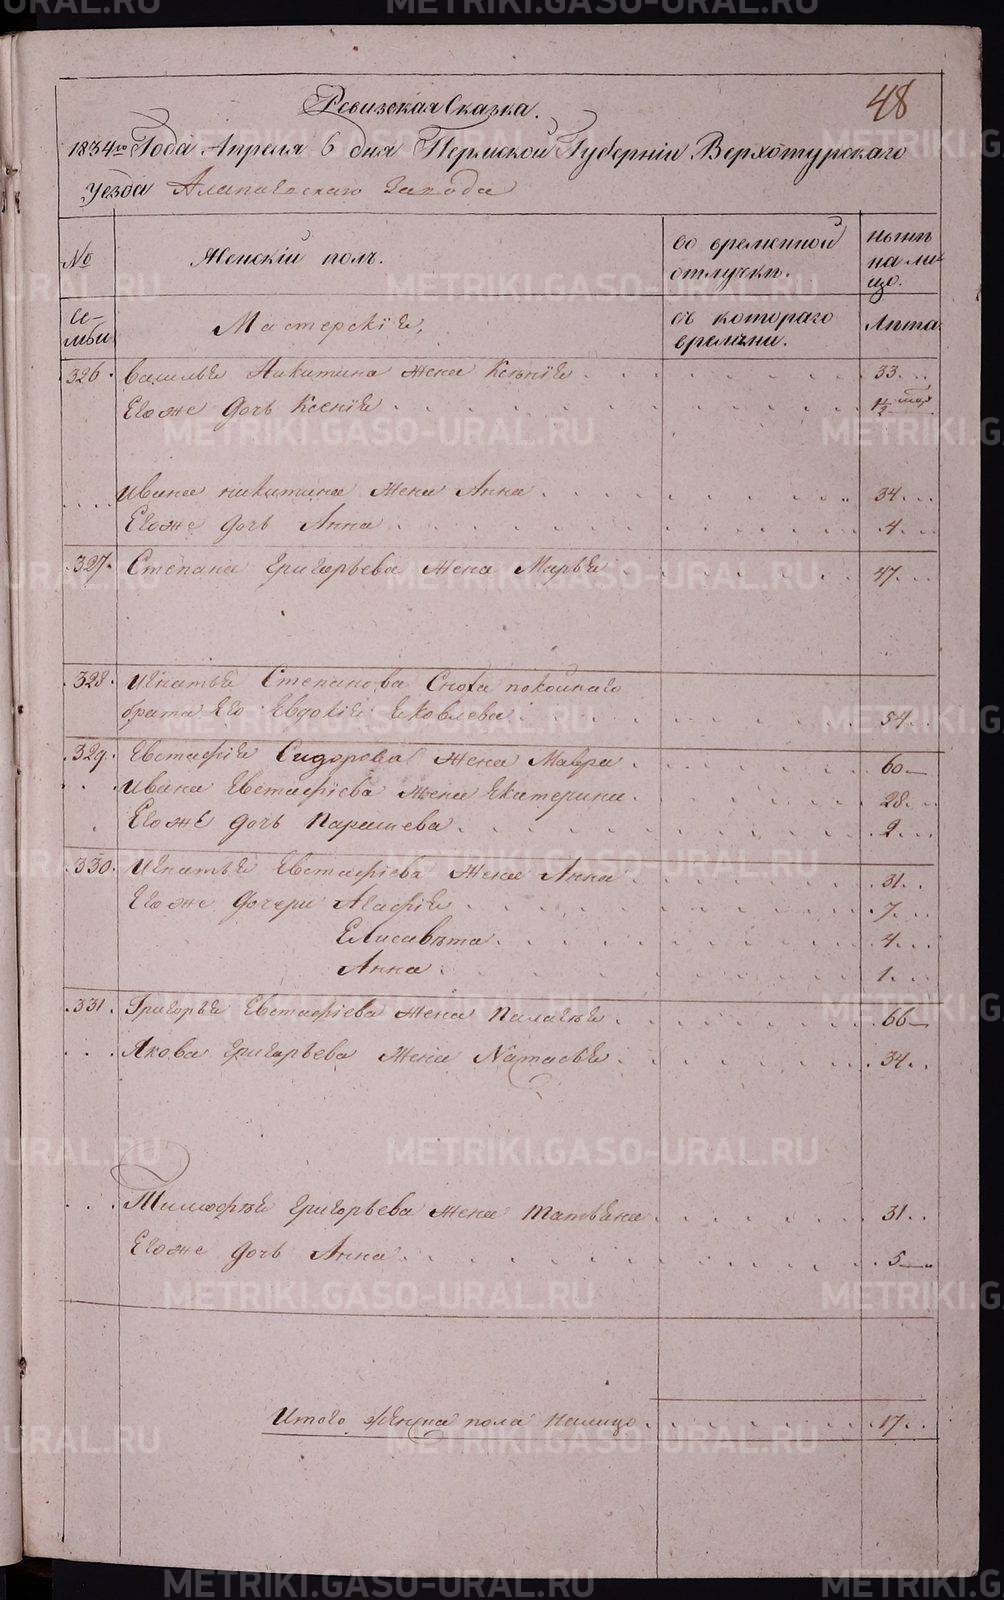 48
Ревизская Сказка.
1834го Года Апреля 6 дня Пермской Губернiи Верхотурскаго
уезда Алапаевскаго завода
№ Женскiй полъ. во временной отлучкѣ. нынѣ на лицо.
Семьи Мастерскiе, съ котораго времѣни. Лѣта
326. Василья Никитина жена Ксѣнiя 33
Его же дочь Ксенiя 1/2
Ивана никитина жена Анна 34
Его же дочь Анна 4
327. Степана Григорьева жена Марья 47
328. Игнатья Степанова Сноха покойнаго
брата его Евдокiя Яковлева 54
329. Евстафiя Сидорова жена Мавра 60
Ивана Евстафiева жена Екатерина 28
Его же дочь Парасева 2
330. Игнатья Евстафiева жена Анна 31
Его же дочери Агафiя 7
Елисавѣта 4
Анна 1
331. Григорья Евстафiева жена Палагѣя 66
Якова Григорьева жена Наталья 34
Тимофѣя Григорьева жена Татьяна 31
Его же дочь Анна 5
Итого женска пола налицо 17
METRIKI.GASO-URAL.RU